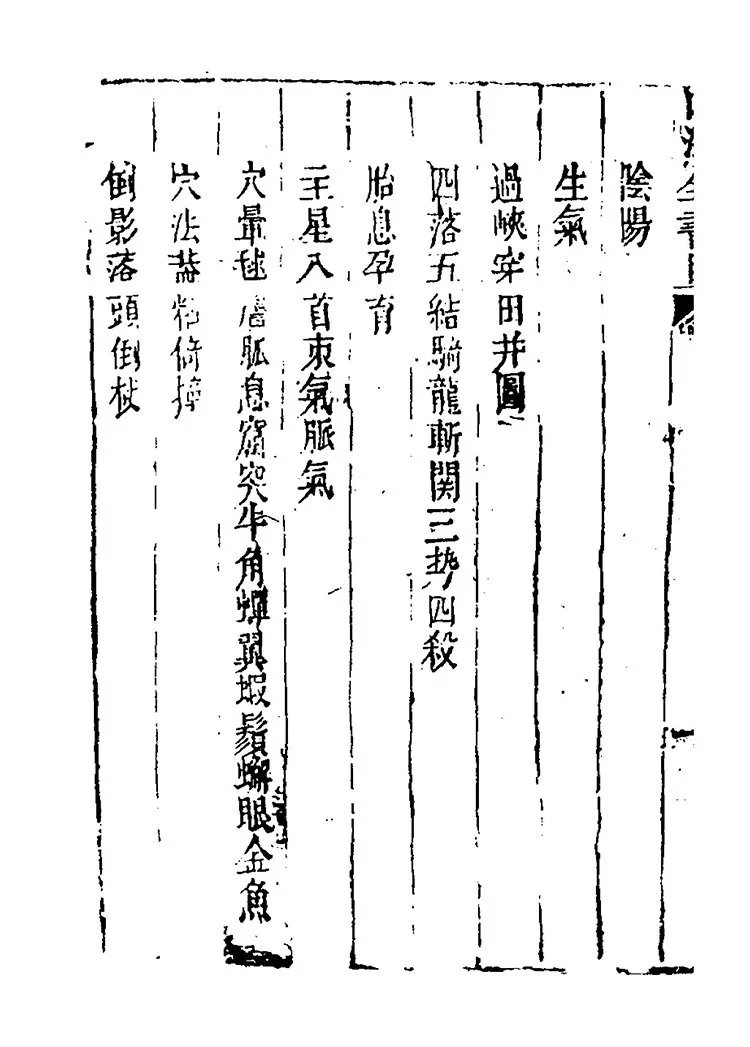 陰陽
生氣
過峽穿田井圖
四落五結騎龍斬関三勢四殺
胎息孕育
主星入首束氣脈氣
穴暈毬唇脈息窟突牛角蟬翼蝦鬚蠏眼金魚
穴法葢粘倚撞
倒影落頭倒杖